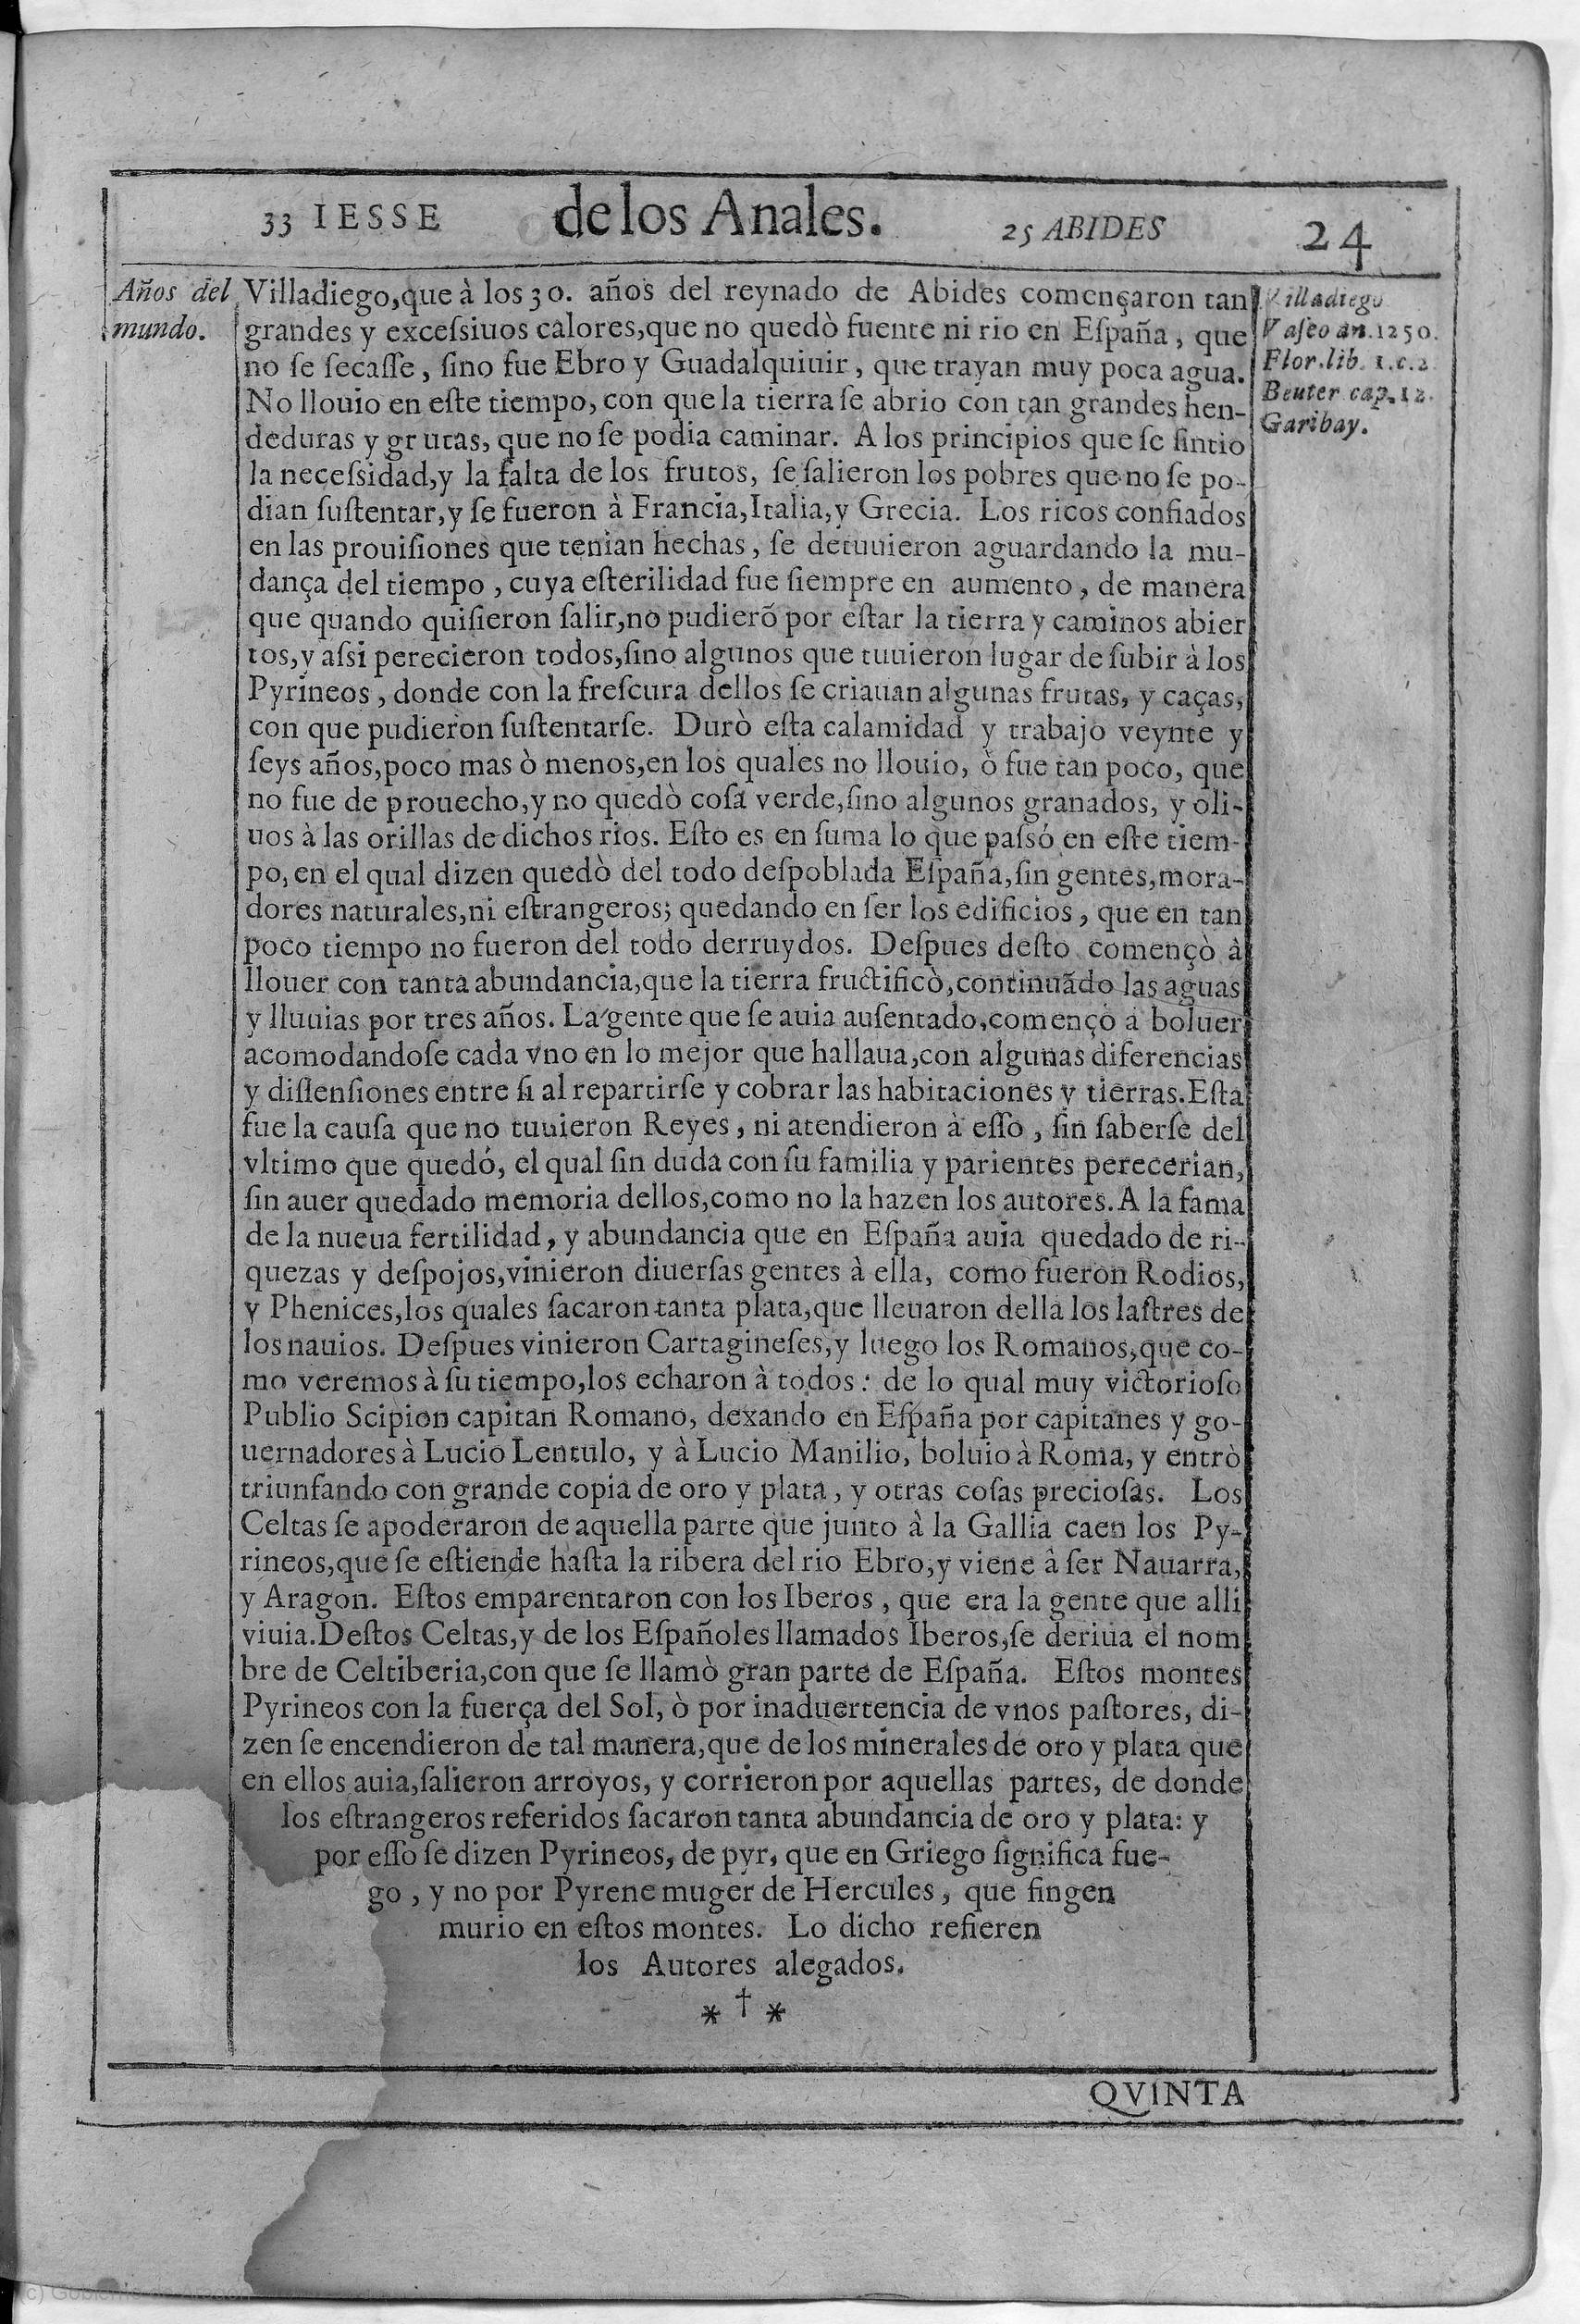 33 IESSE de los Anales. 25 ABIDES 24
Años del
mundo.
Villadiego,que à los 30. años del reynado de Abides començaron tan
grandes y exceſsiuos calores,que no quedò fuente ni rio en Eſpaña, que
no ſe ſecaſſe, ſino fue Ebro y Guadalquiuir, que trayan muy poca agua.
No llouio en eſte tiempo, con que la tierra ſe abrio con tan grandes hen-
deduras y grutas, que no ſe podia caminar. A los principios que ſe ſintio
la neceſsidad,y la falta de los frutos, ſe ſalieron los pobres que no ſe po-
dian ſuſtentar,y ſe fueron à Francia,Italia,y Grecia. Los ricos confiados
en las prouiſiones que tenian hechas, ſe detuuieron aguardando la mu-
dança del tiempo, cuya eſterilidad fue ſiempre en aumento, de manera
que quando quiſieron ſalir,no pudierõ por eſtar la tierra y caminos abier
tos,y aſsi perecieron todos,ſino algunos que tuuieron lugar de ſubir à los
Pyrineos, donde con la freſcura dellos ſe criauan algunas frutas, y caças,
con que pudieron ſuſtentarſe. Durò eſta calamidad y trabajo veynte y
ſeys años,poco mas ò menos,en los quales no llouio, ò fue tan poco, que
no fue de prouecho,y no quedò coſa verde,ſino algunos granados, y oli-
uos à las orillas de dichos rios. Eſto es en ſuma lo que paſsó en eſte tiem-
po, en el qual dizen quedò del todo deſpoblada Eſpaña,ſin gentes,mora-
dores naturales,ni eſtrangeros; quedando en ſer los edificios, que en tan
poco tiempo no fueron del todo derruydos. Deſpues deſto començò à
llouer con tanta abundancia,que la tierra fructificò,continuãdo las aguas
y lluuias por tres años. La gente que ſe auia auſentado,començò à boluer
acomodandoſe cada vno en lo mejor que hallaua,con algunas diferencias
y diſſenſiones entre ſi al repartirſe y cobrar las habitaciones y tierras.Eſta
fue la cauſa que no tuuieron Reyes, ni atendieron à eſſo, ſin ſaberſe del
vltimo que quedó, el qual ſin duda con ſu familia y parientes perecerian,
ſin auer quedado memoria dellos,como no la hazen los autores.A la fama
de la nueua fertilidad, y abundancia que en Eſpaña auia quedado de ri-
quezas y deſpojos,vinieron diuerſas gentes à ella, como fueron Rodios,
y Phenices,los quales ſacaron tanta plata,que lleuaron della los laſtres de
los nauios. Deſpues vinieron Cartagineſes,y luego los Romanos,que co-
mo veremos à ſu tiempo,los echaron à todos: de lo qual muy victorioſo
Publio Scipion capitan Romano, dexando en Eſpaña por capitanes y go-
uernadores à Lucio Lentulo, y à Lucio Manilio, boluio à Roma, y entrò
triunfando con grande copia de oro y plata, y otras coſas precioſas. Los
Celtas ſe apoderaron de aquella parte que junto à la Gallia caen los Py-
rineos,que ſe eſtiende haſta la ribera del rio Ebro,y viene à ſer Nauarra,
y Aragon. Eſtos emparentaron con los Iberos, que era la gente que alli
viuia.Deſtos Celtas,y de los Eſpañoles llamados Iberos,ſe deriua el nom
bre de Celtiberia,con que ſe llamò gran parte de Eſpaña. Eſtos montes
Pyrineos con la fuerça del Sol, ò por inaduertencia de vnos paſtores, di-
zen ſe encendieron de tal manera,que de los minerales de oro y plata que
en ellos auia,ſalieron arroyos, y corrieron por aquellas partes, de donde
los eſtrangeros referidos ſacaron tanta abundancia de oro y plata: y
por eſſo ſe dizen Pyrineos, de pyr, que en Griego ſignifica fue-
go, y no por Pyrene muger de Hercules, que fingen
murio en eſtos montes. Lo dicho refieren
los Autores alegados.
* † *
Villadiego
Vaſeo an.1250.
Flor.lib. 1.c.2.
Beuter cap.12.
Garibay.
QVINTA